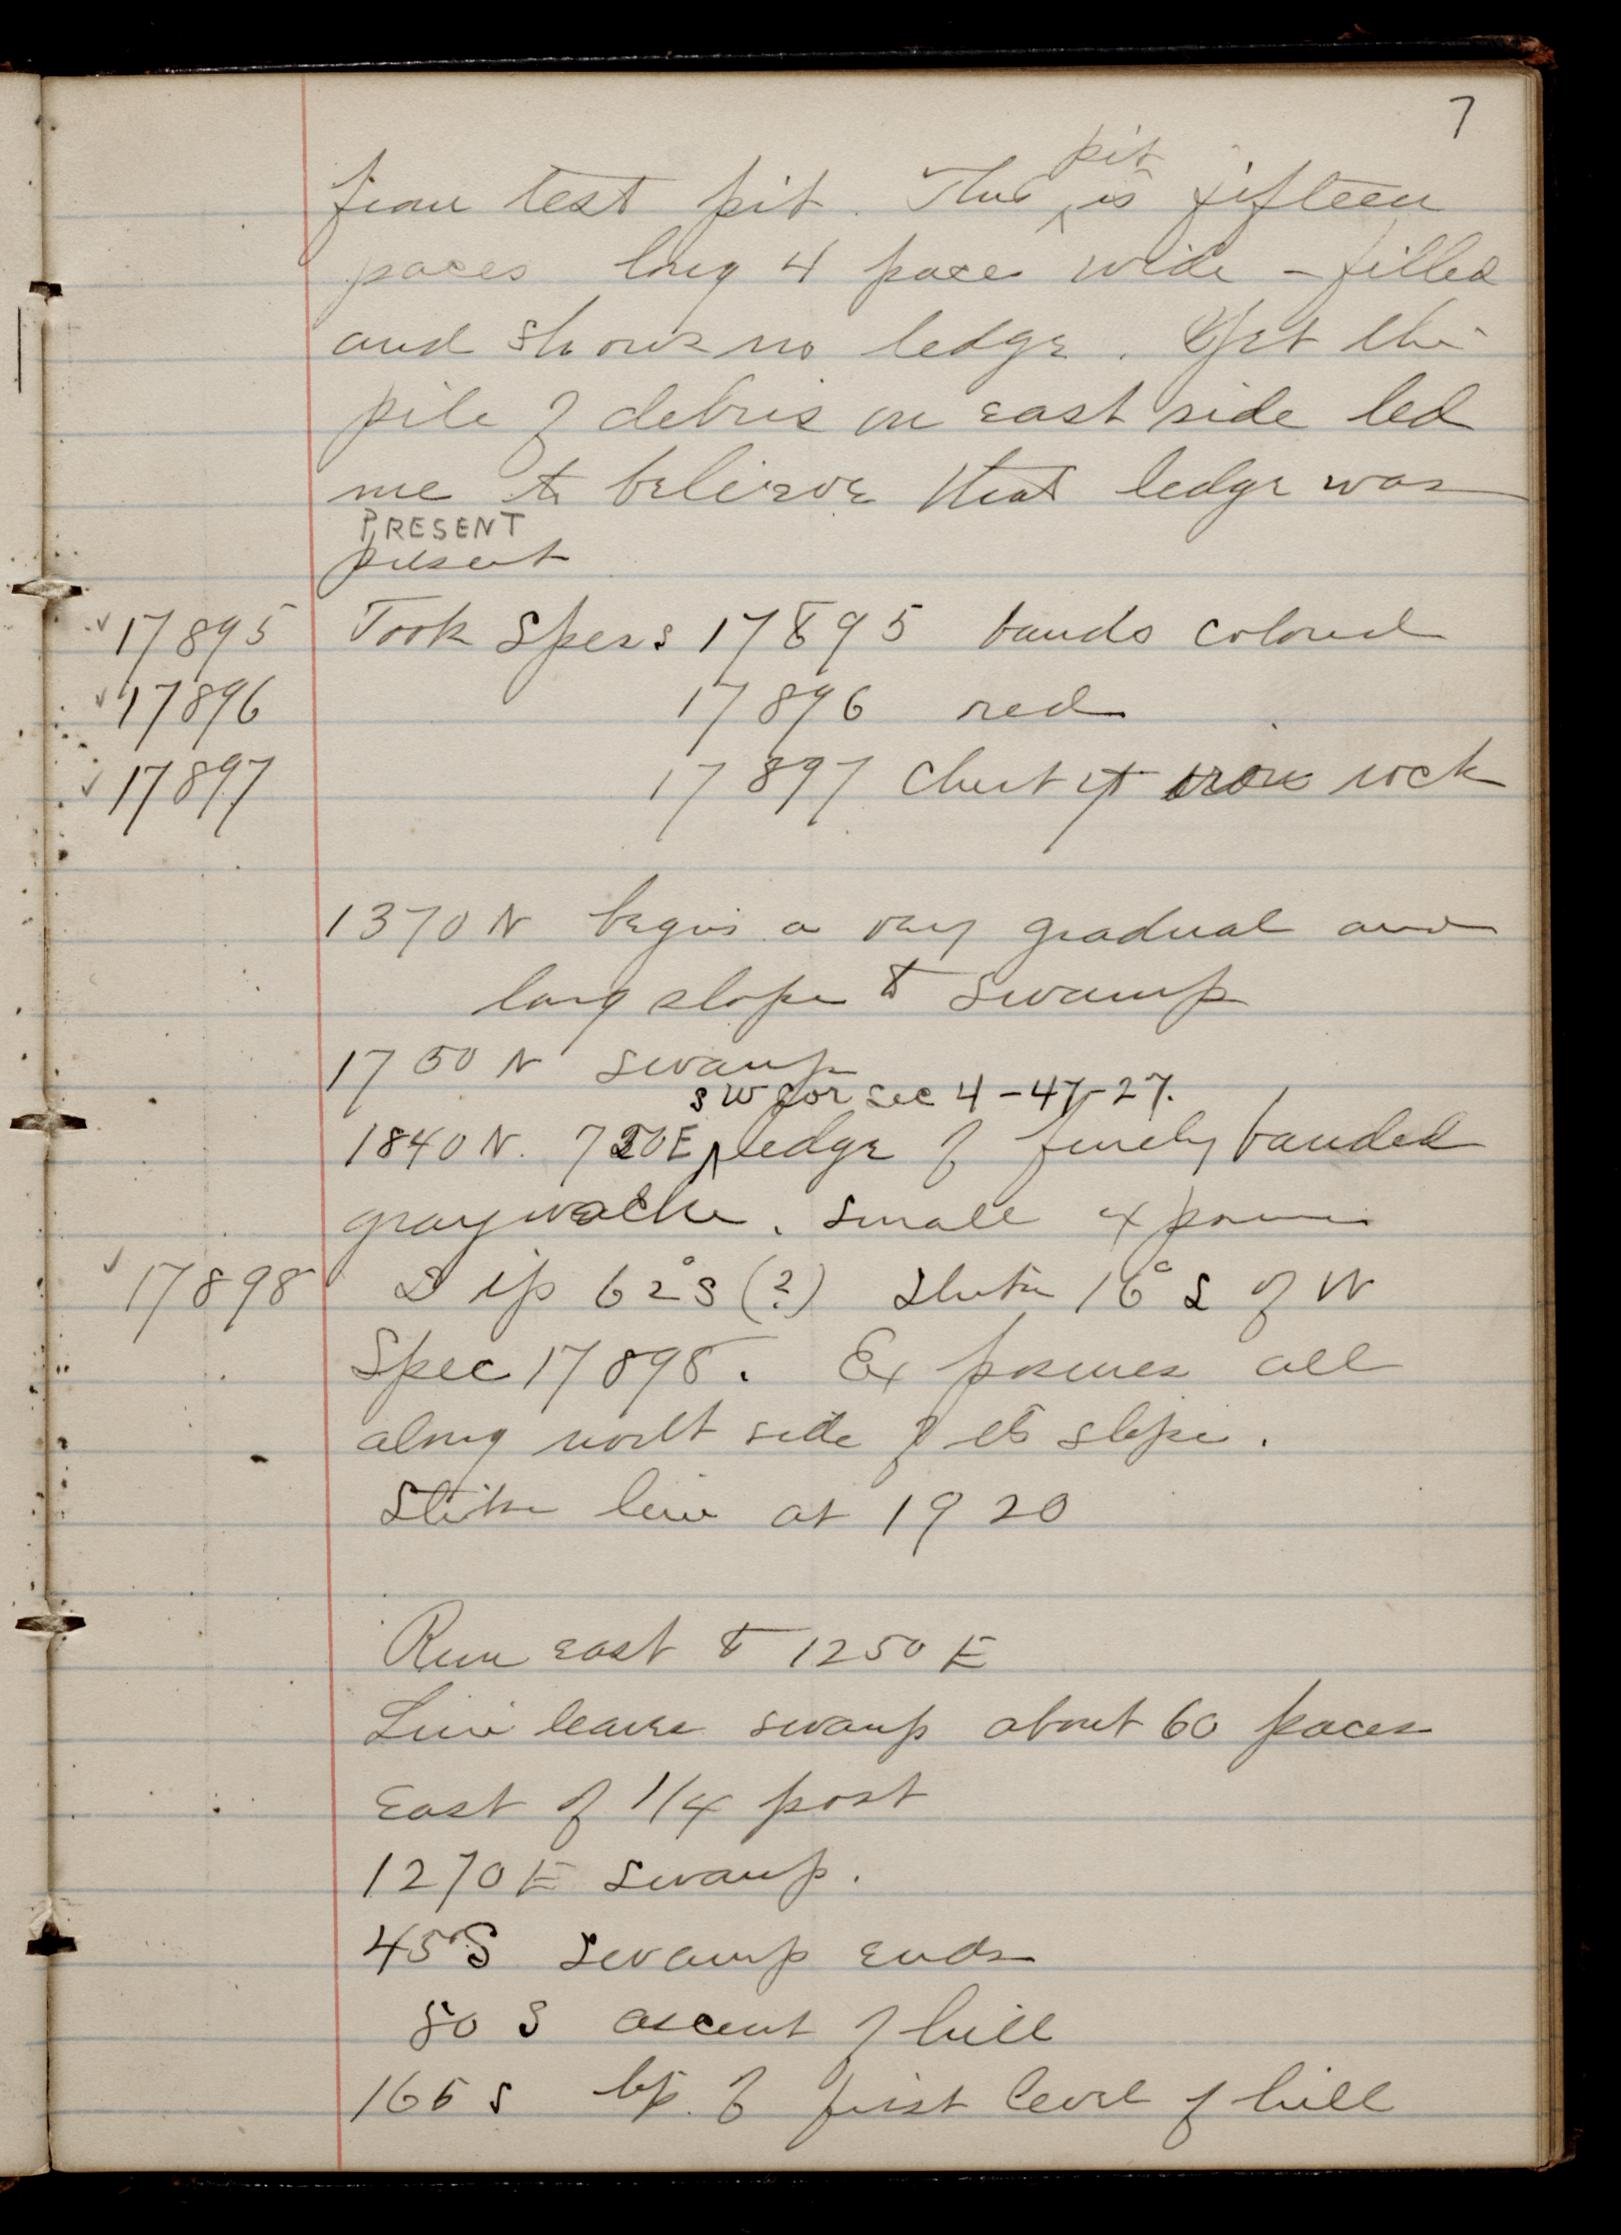 7
from test pit. This pit is fifteen
paces long 4 paces wide – filled
and shows no ledge. Yet the
pile of debris on east side led
me to believe that ledge was
PRESENT
present
17895 Took Specs 17895 bands colored
17896 17896 red
17897 17897 Chert & iron rock
1370 N begins a very gradual and
long slope to swamp
1750 N swamp
SW Cor Sec 4-47-27.
1840 N. 720E ledge of finely banded
graywacke. small exposure
17898 Dip 62° S (?) Strike 16° S of W
Spec 17898. Exposures all
along north side of its slope.
Strike line at 1920
Run east to 1250 E
Line leaves swamp about 60 paces
East of 1/4 post
1270 E swamp.
45 S swamp ends
80 S ascent of hill
165 S top of first level of hill